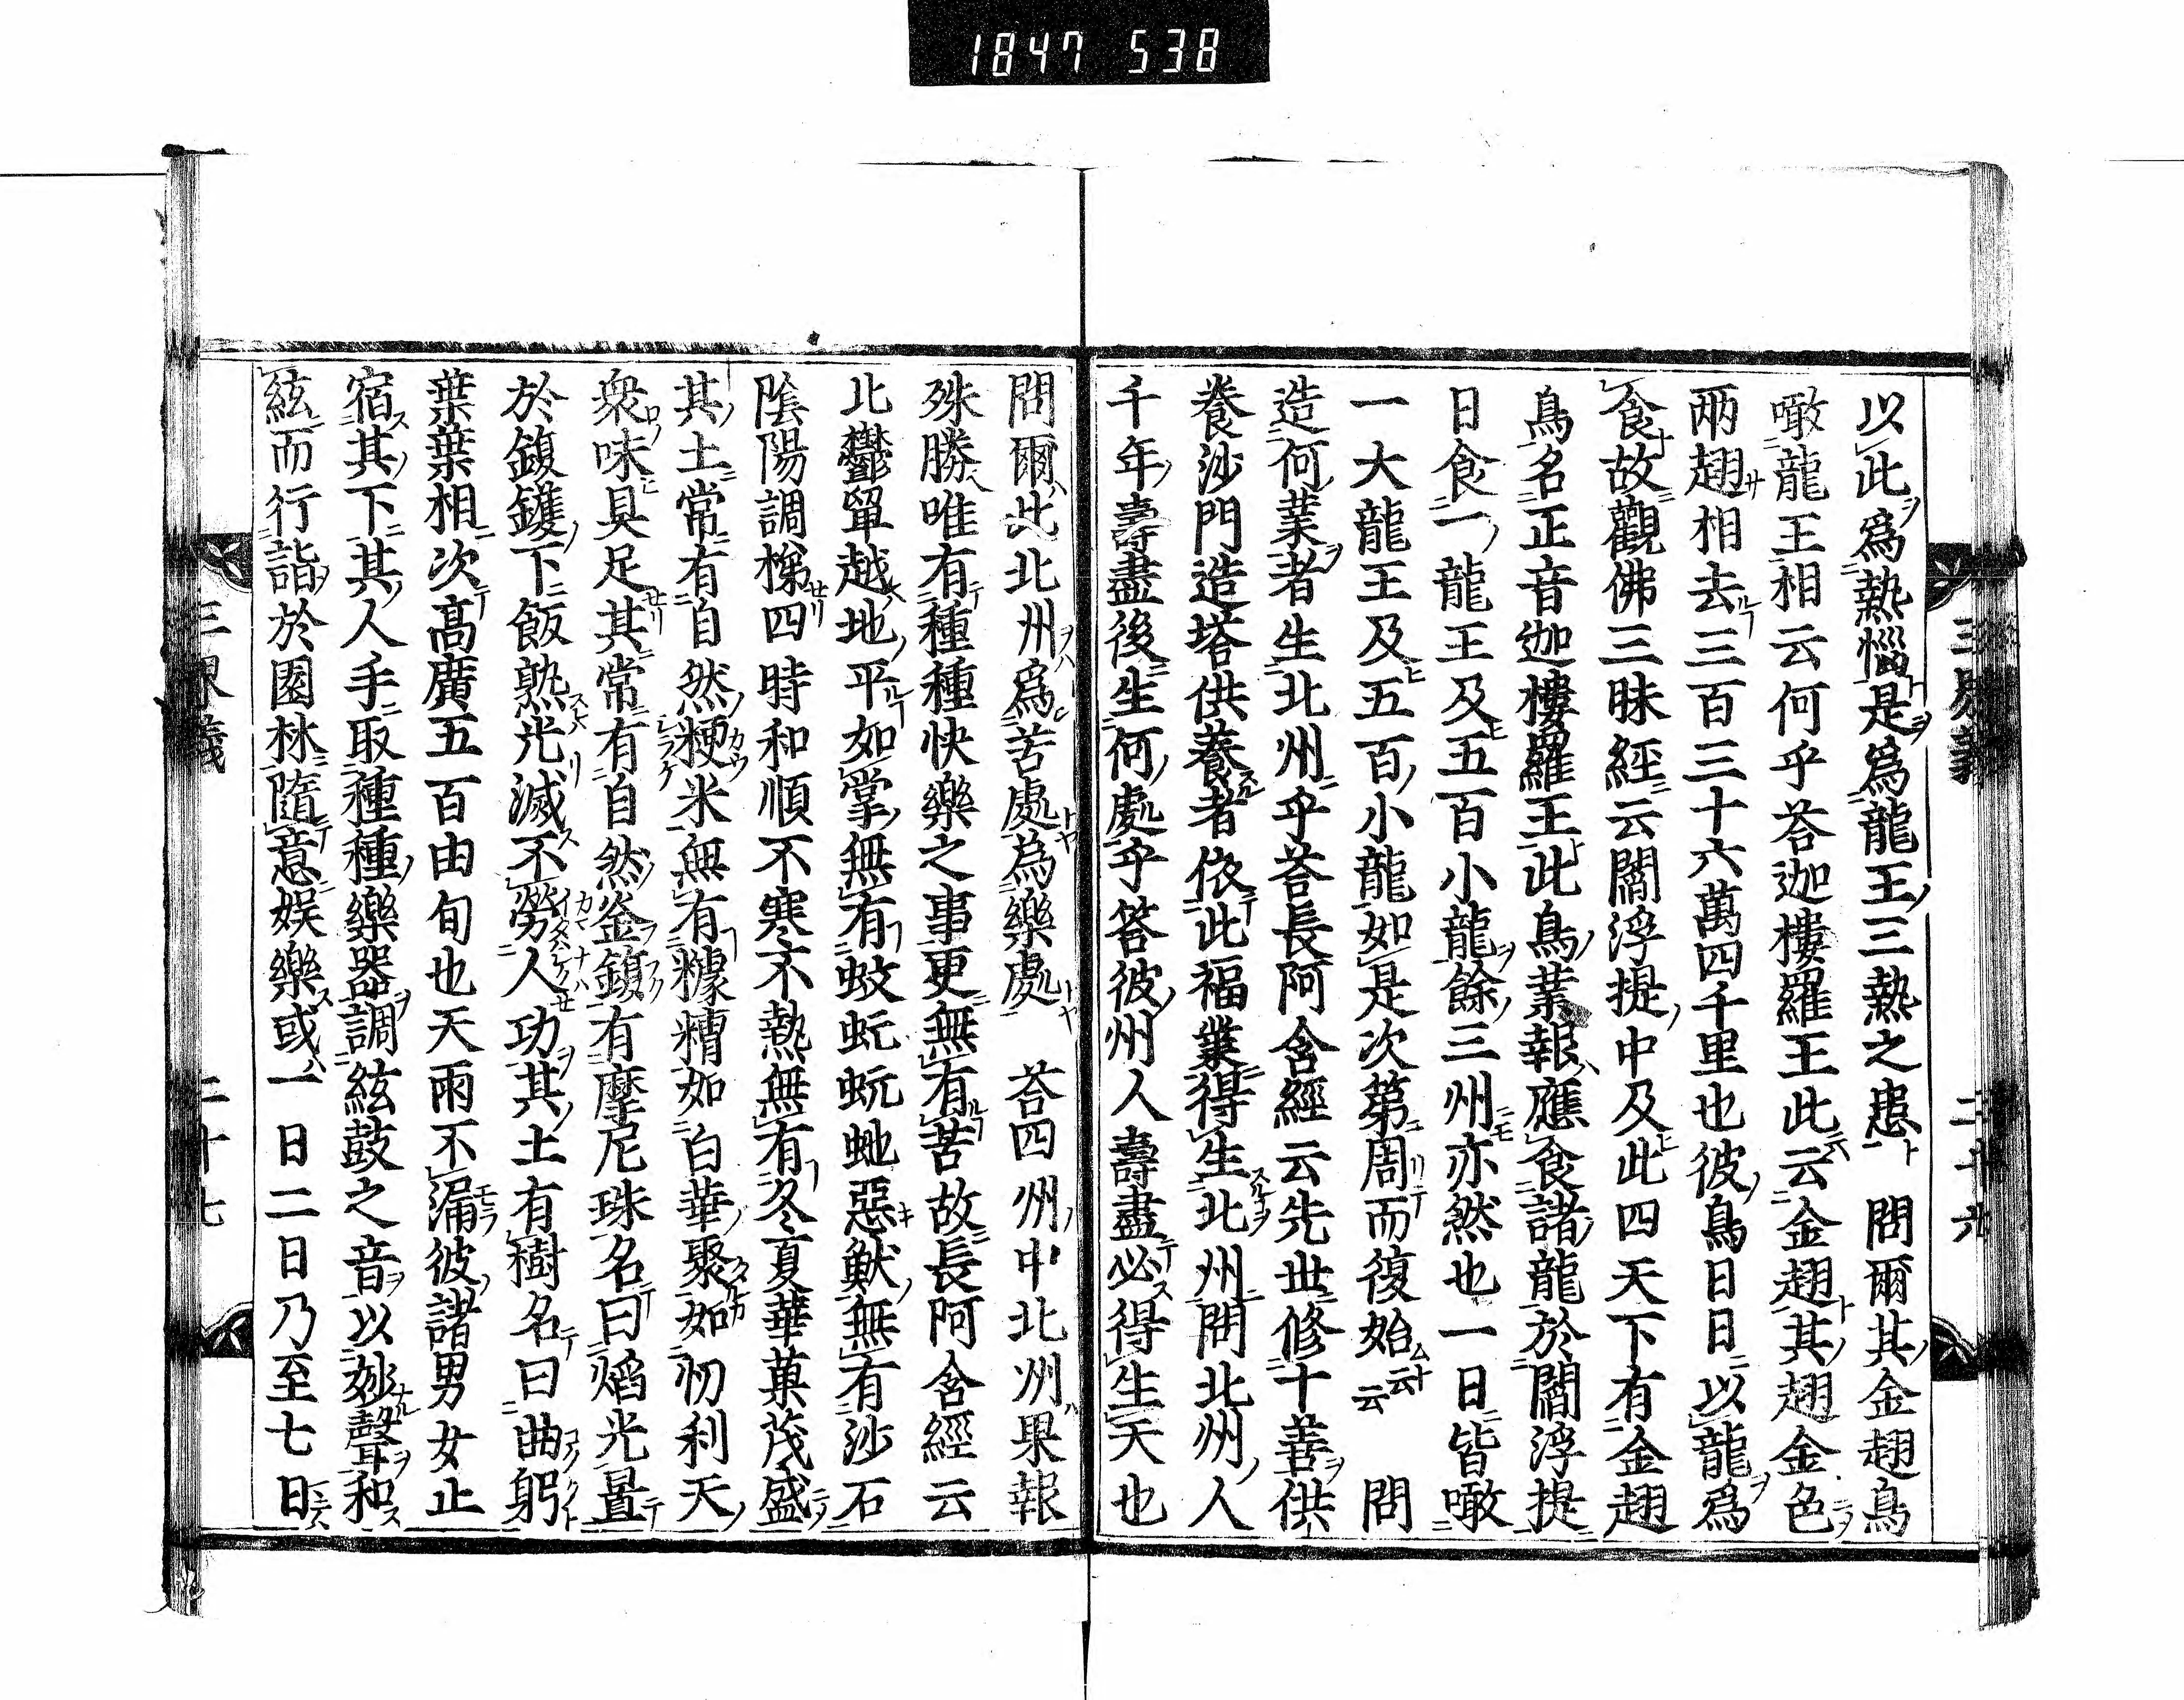 1847 538
三界義 二十六
以此爲熱惱是爲龍王三熱之患 問爾其金翅鳥
噉龍王相云何乎荅迦樓羅王此云金翅其翅金色
兩翅相去三百三十六萬四千里也彼鳥日日以龍爲
食故觀佛三昧經云閻浮提中及此四天下有金翅
鳥名正音迦樓羅王此鳥業報應食諸龍於閻浮提
日食一龍王及五百小龍餘三州亦然也一日皆噉
一大龍王及五百小龍如是次第周而復始云云 問
造何業者生北州乎荅長阿含經云先世修十善供
養沙門造塔供養者依此福業得生北州問北州人
千年壽盡後生何處乎答彼州人壽盡必得生天也
問爾此北州爲苦處為樂處 荅四州中北州果報
殊勝唯有種種快樂之事更無有苦故長阿含經云
北鬱單越地平如掌無有蚊虻蚖虵惡獸無有沙石
陰陽調梯四時和順不寒不熱無有冬夏華菓茂盛
其土常有自然粳米無有糠糟如白華聚如忉利天
衆味具足其常有自然釜鍑有摩尼珠名曰焰光置
於鍑鑊下飯熟光滅不勞人功其土有樹名曰曲躬
葉葉相次髙廣五百由旬也天雨不漏彼諸男女止
宿其下其人手取種種樂器調絃鼓之音以妙聲和
絃而行詣於園林隨意娱樂或一日二日乃至七日
三界義 二十七